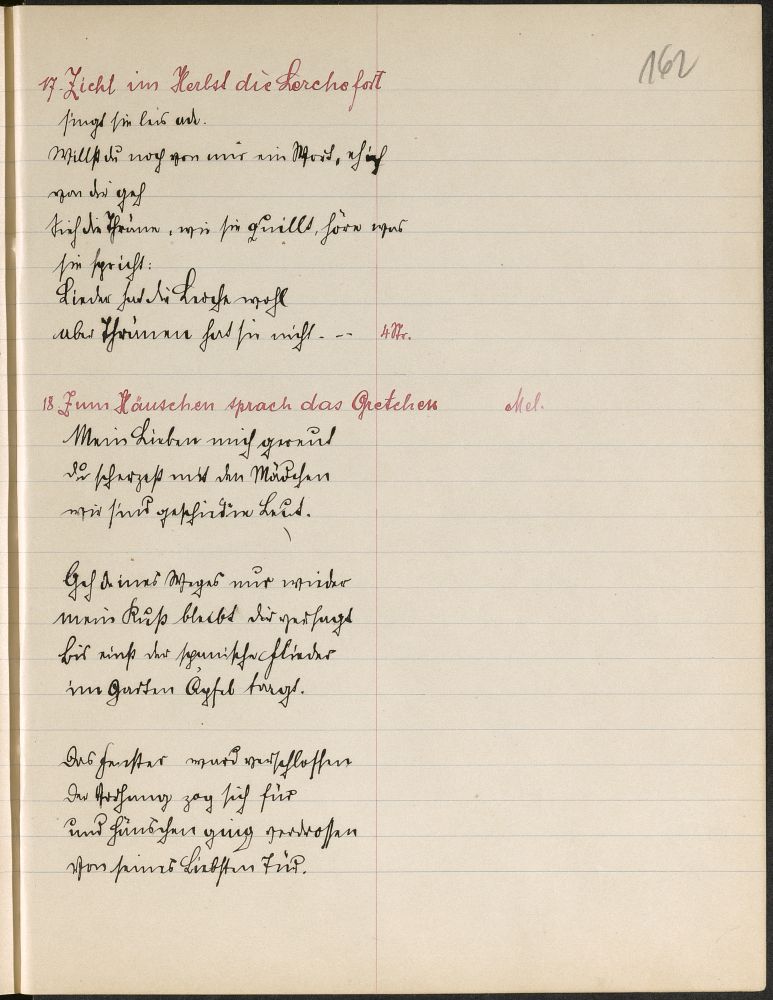 162
17. Zieht im Herbst die Lerche fort
singt sie leis ade.
Willst du noch von mir ein Wort, eh ich
von dir geh
Sieh die Thräne, wie sie quillt, höre was
sie spricht:
Lieder hat die Lerche wohl
aber Thränen hat sie nicht. – – 4 Str.
18. Zum Hänschen sprach das Gretchen Mel.
Mein Lieben mich gereut
du scherzest mit den Mädchen
wir sind geschiedne Leut.
Geh deines Weges nur wieder
mein Kuß bleibt dir versagt
bis einst der spanische Flieder
im Garten Äpfel tragt.
Das Fenster ward verschlossen
der Vorhang zog sich für
und Hänschen ging verdrossen
von seines Liebsten Tür.